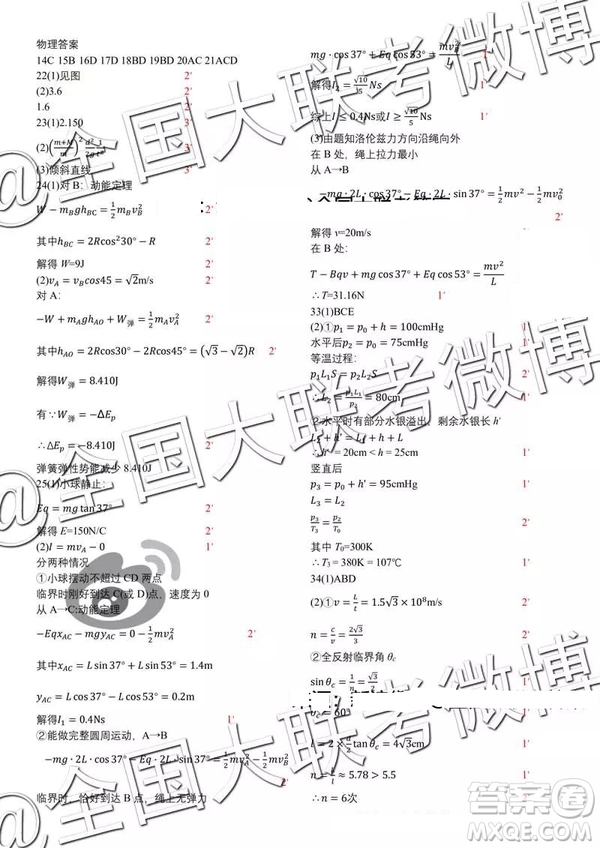 物理答案
14C 15B 16D 17D 18BD 19BD 20AC 21ACD
22(1)见图 2'
(2)3.6 2'
1.6 2'
23(1)2.150 2'
(2)(\frac{m+M}{m})^2 \frac{d^2}{2g} \frac{1}{t^2} 2'
(3)倾斜直线
24(1)对 B：动能定理
W − m_B g h_{BC} = \frac{1}{2} m v_B^2 2'
其中 h_{BC} = 2R cos²30° − R 2'
解得 W=9J
(2)v_A = v_B cos45 = √2 m/s 2'
对 A：
−W + m_A g h_{AO} + W_弹 = \frac{1}{2} m v_A^2 2'
其中 h_{AO} = 2R cos30° − 2R cos45° = (√3 − √2)R 2'
解得 W_弹 = 8.410J 1'
有∵ W_弹 = −ΔE_p 1'
∴ ΔE_p = −8.410J
弹簧弹性势能减少 8.410J 1'
25(1)小球静止：
Eq = mg tan37° 2'
解得 E=150N/C 1'
(2)I = m v_A − 0 1'
分两种情况
①小球摆动不超过 CD 两点
临界时刚好到达 C(或 D)点，速度为 0
从 A→C:动能定理
−Eq x_{AC} − mg y_{AC} = 0 − \frac{1}{2} m v_A^2 2'
x_{AC} = L sin37° + L sin53° = 1.4m
y_{AC} = L cos37° − L cos53° = 0.2m
解得 I_1 = 0.4Ns 1'
②能做完整圆周运动，A→B
−mg·2L·cos37° − Eq·2L·sin37° = \frac{1}{2} m v_B^2 − \frac{1}{2} m v_A^2
2'
临界时，恰好到达 B 点，绳上无弹力 1'
mg·cos37° + Eq cos53° = \frac{m v_B^2}{L}
解得 I_2 = \frac{√10}{5} Ns 1'
综上 I ≤ 0.4Ns 或 I ≥ \frac{√10}{5} Ns 1'
(3)由题知洛伦兹力方向沿绳向外
在 B 处，绳上拉力最小
从 A→B
−mg·2L·cos37° − Eq·2L·sin37° = \frac{1}{2} m v^2 − \frac{1}{2} m v_0^2
2'
解得 v=20m/s 1'
在 B 处：
T − Bqv + mg cos37° + Eq cos53° = \frac{m v^2}{L} 2'
∴ T=31.16N 1'
33(1)BCE
(2)①p_1 = p_0 + h = 100cmHg
水平后 p_2 = p_0 = 75cmHg 1'
等温过程：
p_1 L_1 S = p_2 L_2 S 1'
L_2 = \frac{p_1 L_1}{p_2} = 80cm 1'
②水平时有部分水银溢出，剩余水银长 h'
L_2 + h' = L_1 + h
∴ h' = 20cm < h = 25cm 1'
竖直后
p_3 = p_0 + h' = 95cmHg 1'
L_3 = L_2 1'
\frac{p_2}{T_0} = \frac{p_3}{T_3} 2'
其中 T_0=300K 1'
∴ T_3 = 380K = 107℃ 1'
34(1)ABD
(2)①v = \frac{L}{t} = 1.5√3 × 10^8 m/s 1'
n = \frac{c}{v} = \frac{2√3}{3} 2'
②全反射临界角 θ_c
sinθ_c = \frac{1}{n} = \frac{√3}{2} 1'
θ_c = 60° 1'
l = 2 × \frac{d}{2} tanθ_c = 4√3 cm 2'
n = \frac{L}{l} ≈ 5.78 > 5.5 2'
∴ n = 6次 1'
@全国大联考微博
@全国大联考微博
@全国大联考微博
答案圈
MXQE.COM